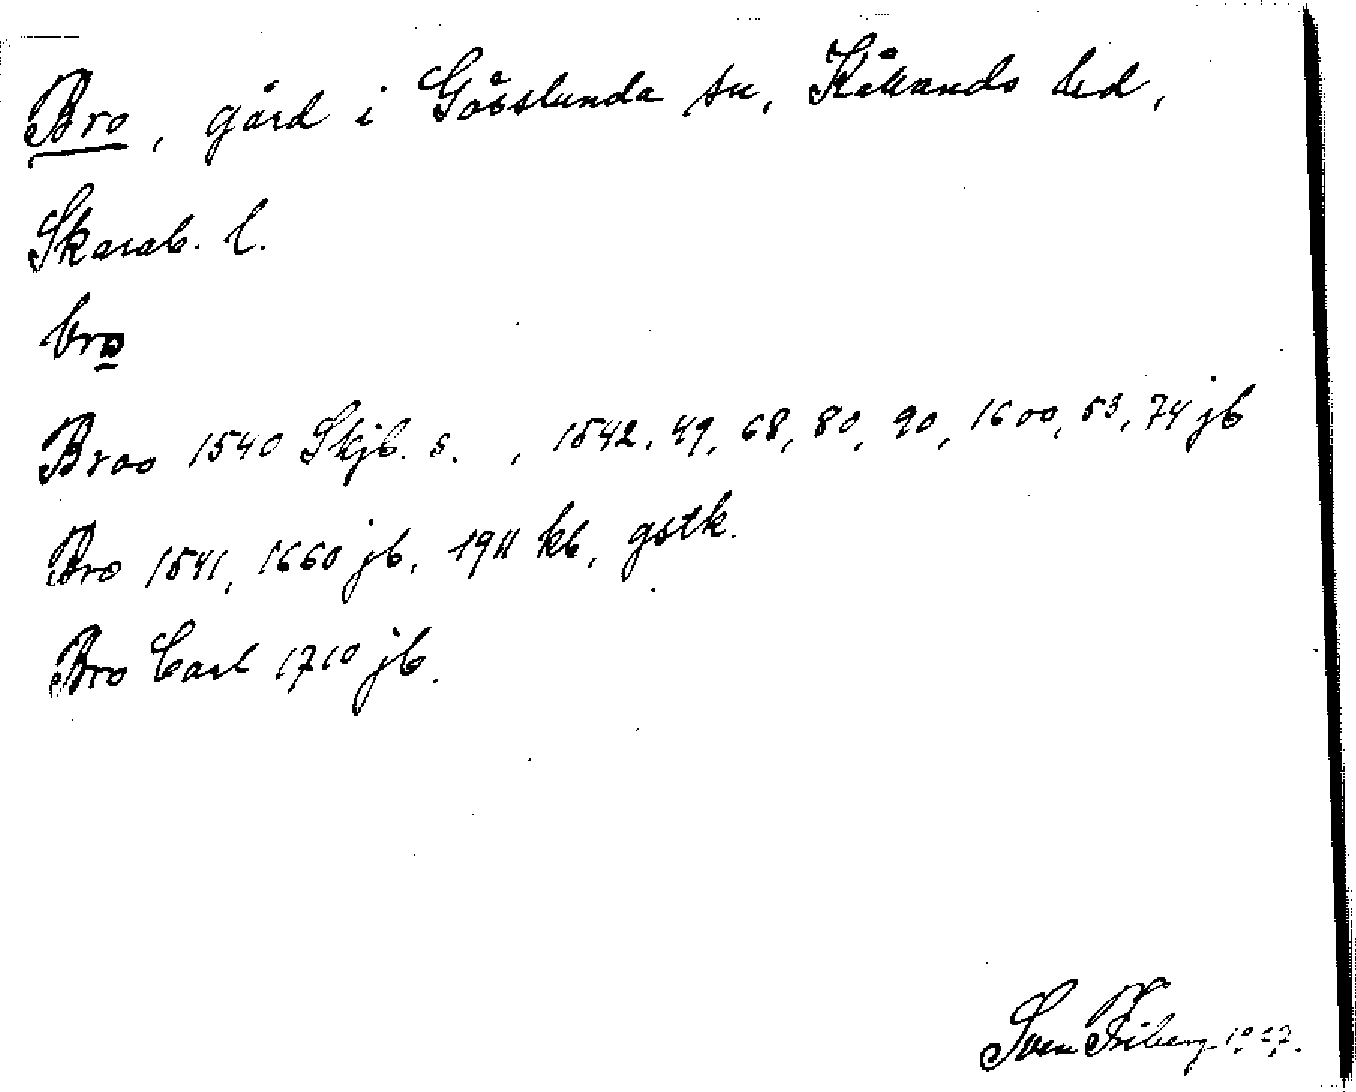 Bro, gård i Gösslunda sn, Kållands hd,
Skarab. l.
bro
Broo 1540 Skjb. s. , 1542, 49, 68, 80, 90, 1600, 53, 74 jb
Bro 1541, 1660 jb, 1911 kb, gstk.
Bro Carl 1710 jb.
Sven Friberg 1927.